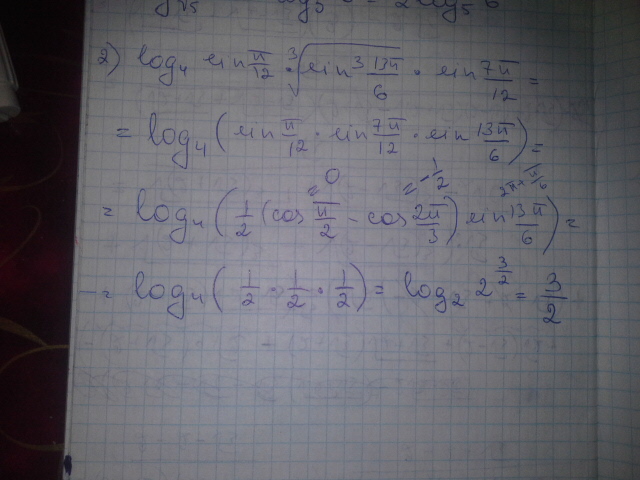 2) log₄ sin π/12 · ∛(sin³ 13π/6) · sin 7π/12 =
= log₄ (sin π/12 · sin 7π/12 · sin 13π/6) =
= 0 = -1/2 2π+π/6
= log₄ (1/2 (cos π/2 - cos 2π/3) sin 13π/6) =
= log₄ (1/2 · 1/2 · 1/2) = log₂ 2^(3/2) = 3/2